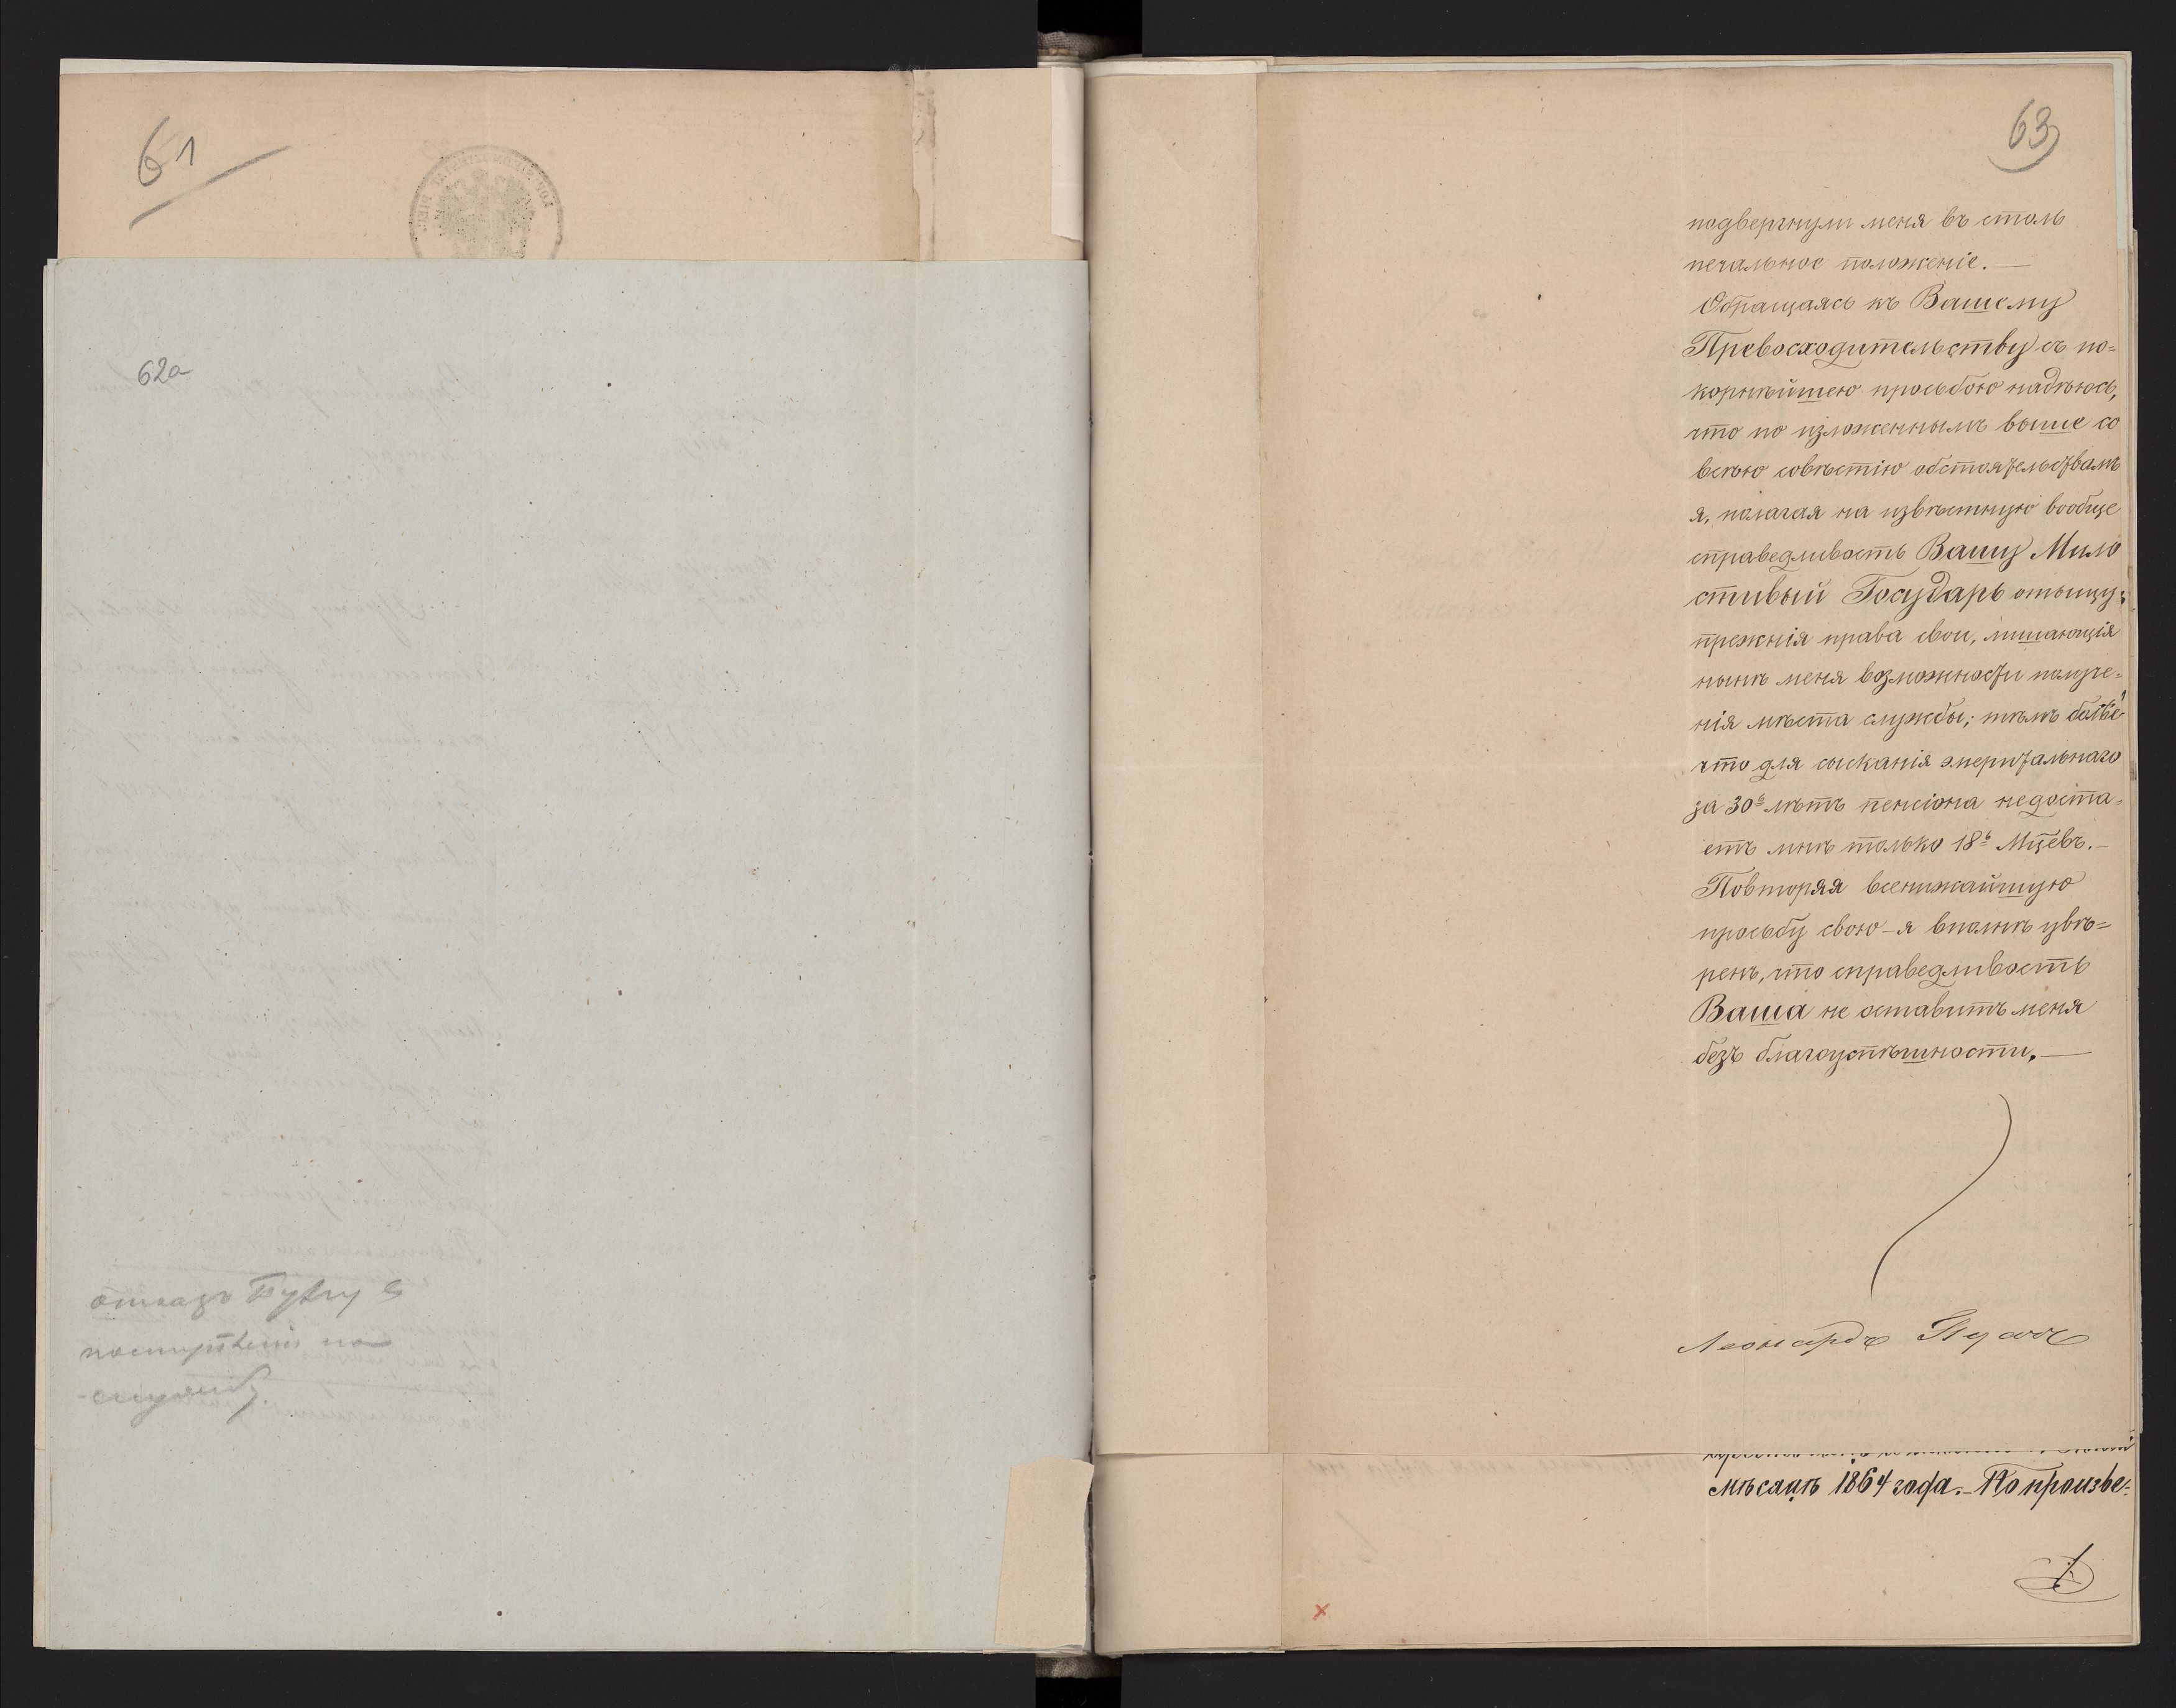 61
62а
отказъ Пухну
поступленiи на
службу
63
подвергнули меня въ столь
печальное положеніе. —
Обращаясь къ Вашему
Превосходительству съ по=
корнѣйшею просьбою надѣюсь,
что по изложеннымъ выше со
всею совѣстію обстоятельствамъ
я, полагая на извѣстную вообще
справедливость Вашу Мило
стивый Государь отыщу
прежнія права свои, лишающія
нынѣ меня возможности получе=
нія мѣста службы; тѣмъ болѣе
что для сысканія эмеритальнаго
за 30ь лѣтъ пенсіона недоста=
етъ мнѣ только 18ь Мцевъ. —
Повторяя всенижайшую
просьбу свою – я вполнѣ увѣ=
ренъ, что справедливость
Ваша не оставитъ меня
безъ благоуспѣшности. —
Леонардъ
мѣсяцѣ 1864 года. – По произве=